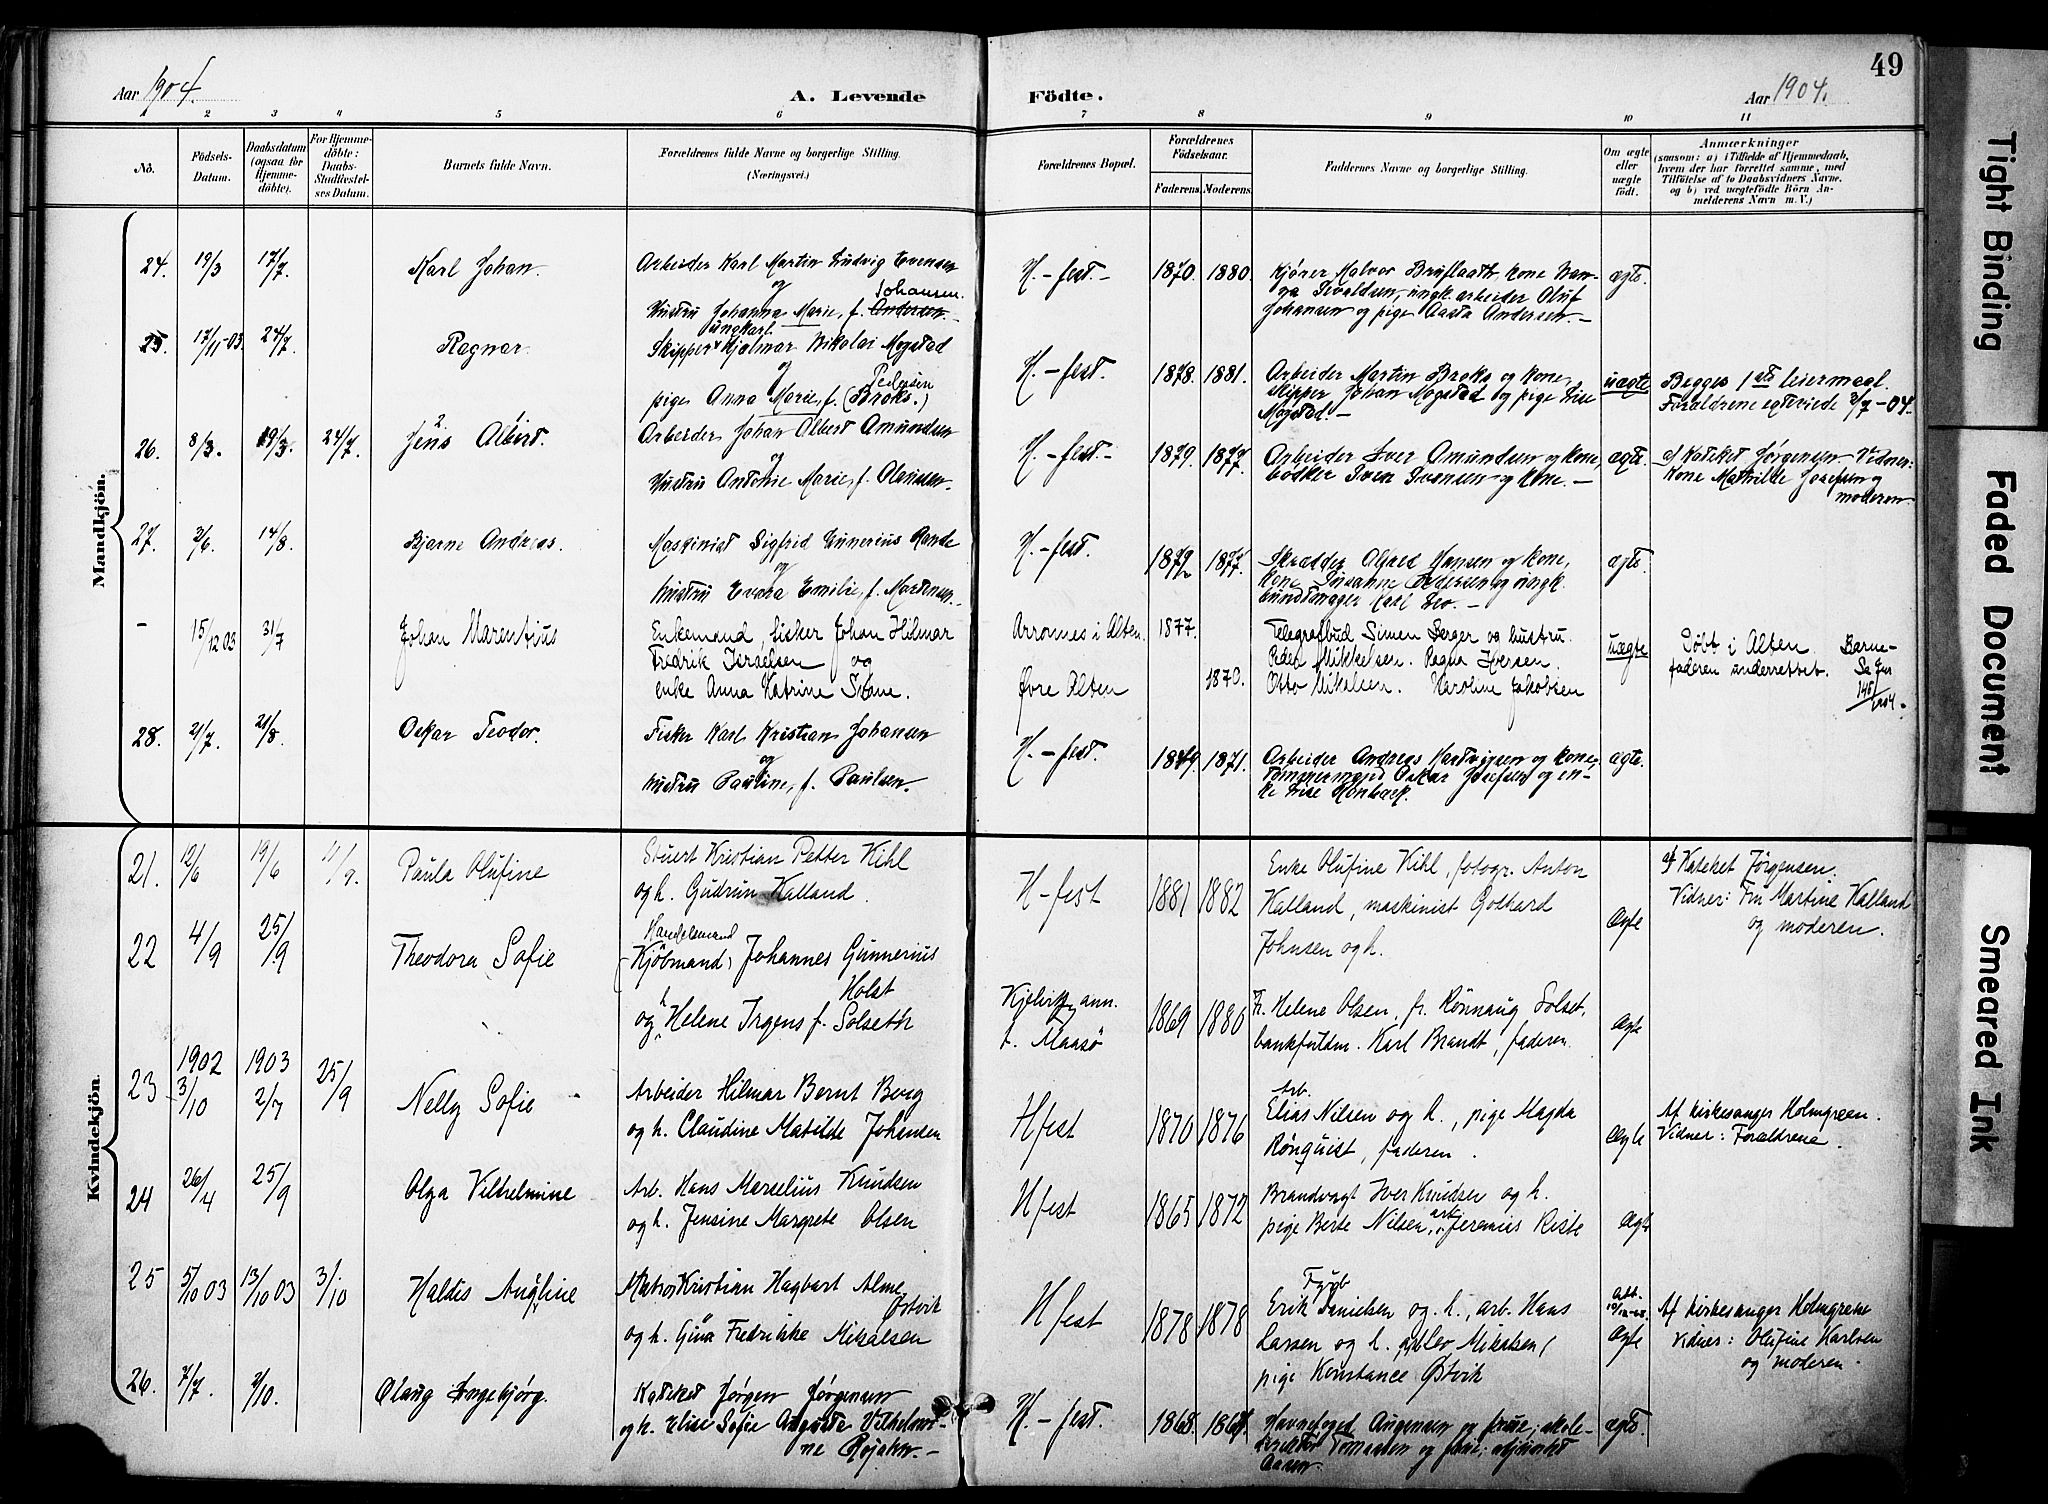 49
Aar 1904.
A. Levende Födte.
Aar 1904.
1 2 3 4 5 6 7 8 9 10 11
No.
Födsels-Datum.
Daabsdatum (ogsaa for Hjemme-döbte).
For Hjemme-döbte: Daabs-Stadfæstel-ses Datum.
Barnets fulde Navn.
Forældrenes fulde Navne og borgerlige Stilling.
(Næringsvei.)
Forældrenes Bopæl.
Forældrenes Födselsaar.
Faderens. Moderens.
Faddernes Navne og borgerlige Stilling.
Om ægte eller uægte födt.
Anmærkninger
(saasom: a) i Tilfælde af Hjemmedaab,
hvem der har forrettet samme, med
Tilföielse af to Daabsvidners Navne,
og b) ved uægtefödte Börn An-
melderens Navn m. V.)
Mandkjön.
24. 19/3 17/7. Karl Johan.
Arbeider Karl Martin Ludvig Evensen
og
Hustru Johanna Marie, f. Andersen Johansen.
H.-fest.- 1870. 1880.
Kjører Halvor Bryflaath, kone Nan-
na Sivaldsen, ungk. arbeider Oluf
Johansen og pige Aasta Andersen.-
ægte.
25. 17/11-03. 24/7. Ragnar.
Skipper ungkarl Hjalmar Nikolai Mogstad
og
pige Anna Marie, f. Pedersen (Broks.)
H.-fest. 1878. 1881.
Arbeider Martin Broks og kone,
skipper Johan Mogstad og pige Lise
Mogstad.-
uægte
Begges 1ste leiermaal.
Forældrene egteviede 2/7-04.
26. 8/3. 19/3. 24/7. Jens Albert.
Arbeider Johan Albert Amundsen
og
Hustru Antonie Marie, f. Olaussen.
H.-fest.- 1879. 1877.
Arbeider Iver Amundsen og kone,
bødker Sven Svensen og kone.-
ægte.
af Kateket Jørgensen. Vidner:
Kone Mathilde Josefsen og
moderen.
27. 2/6. 14/8. Bjarne Andreas.
Maskinist Sigfrid Gunerius Rande
og
Hustru Evora Emilie, f. Martinsen.
H.-fest. 1872 1877.
Skrædder Alfred Hansen og kone,
kone Susanne Pedersen og ungk.
buntmager Karl Bro.-
ægte.
- 15/12 03 31/7 Johan Marentius
Enkemand, fisker Johan Hilmar
Fredrik Israelsen og
enke Anna Katrine Stane.
Arrones i Alten.
Øvre Alten
1877. 1870.
Telegrafbud Simen Berger og hustru.
Peder Mikkelsen. Ragna Iversen.
Otto Mikalsen. Karoline Jakobsen
uægte
Døbt i Alten. Barne-
faderen underrettet. Se Jnr
145/1904.
28. 2/7. 21/8. Oskar Teodor.
Fisker Karl Kristian Johansen
og
Hustru Pauline, f. Paulsen.
H.-fest. 1879. 1871.
Arbeider Andreas Hartvigsen og kone,
Tømmermand Oskar Josefsen og en-
ke Lise Kønback.
ægte.
Kvindekjön.
21. 12/6 19/6 11/9. Paula Olufine
Stuert Kristian Petter Kihl
og h. Gudrun Kalland.
H-fest 1881 1882
Enke Olufine Kihl, fotogr. Anton
Kalland, maskinist Gothard
Johnsen og h.
Ægte
af Kateket Jørgensen.
Vidner: Fru Martine Kalland
og moderen.
22 4/9 25/9 Theodora Sofie
Handelsmand
(Kjöbmand) Johannes Gunnerius
Holst
og h Helene Irgens f. Solseth
Kjelvik ann.
t. Maasö
1869 1880
Fr. Helene Olsen, fr. Rönnaug Solset,
bankfuldm. Karl Brandt, faderen.
Ægte
23 1902 3/10 1903 2/7 25/9 Nelly Sofie
Arbeider Hilmar Bernt Berg
og h. Claudine Matilde Johansen
Hfest 1870 1876
Arb.
Elias Nilsen og h., pige Magda
Rönquist, faderen.
Ægte
Af kirkesanger Holmgreen.
Vidner: Forældrene.
24 26/4 25/9 Olga Vilhelmine
Arb. Hans Marselius Knudsen
og h. Jensine Margrete Olsen
Hfest 1865 1872
Brandvagt Iver Knudsen og h.
pige Berte Nilsen, arb. Jeremias Riste
Ægte
25 5/10 03 13/10 03 3/10 Haldis Angeline
Matros Kristian Hagbart Alme
Østvik
og h. Gina Fredrikke Mikalsen
Hfest 1878 1878
Fyrb
Erik Danielsen og h., arb. Hans
Larsen og h., Mikalsen,
pige Konstance Østvik
Ægte
Af kirkesanger Holmgrene
Vidner: Olufine Karlsen
og moderen.
26. 7/7. 2/10. Olaug Ingebjørg.
Kateket Jørgen Jørgensen
og h. Elise Sofie Augusta Vilhelmi-
ne Rojahn.-
H.-fest. 1868. 1867.
Havnefoged Augensen og frue, skole-
direktør Tomassen og frue, adjunkt
Aasen.
ægte.
Tight Binding
Faded Document
Smeared Ink